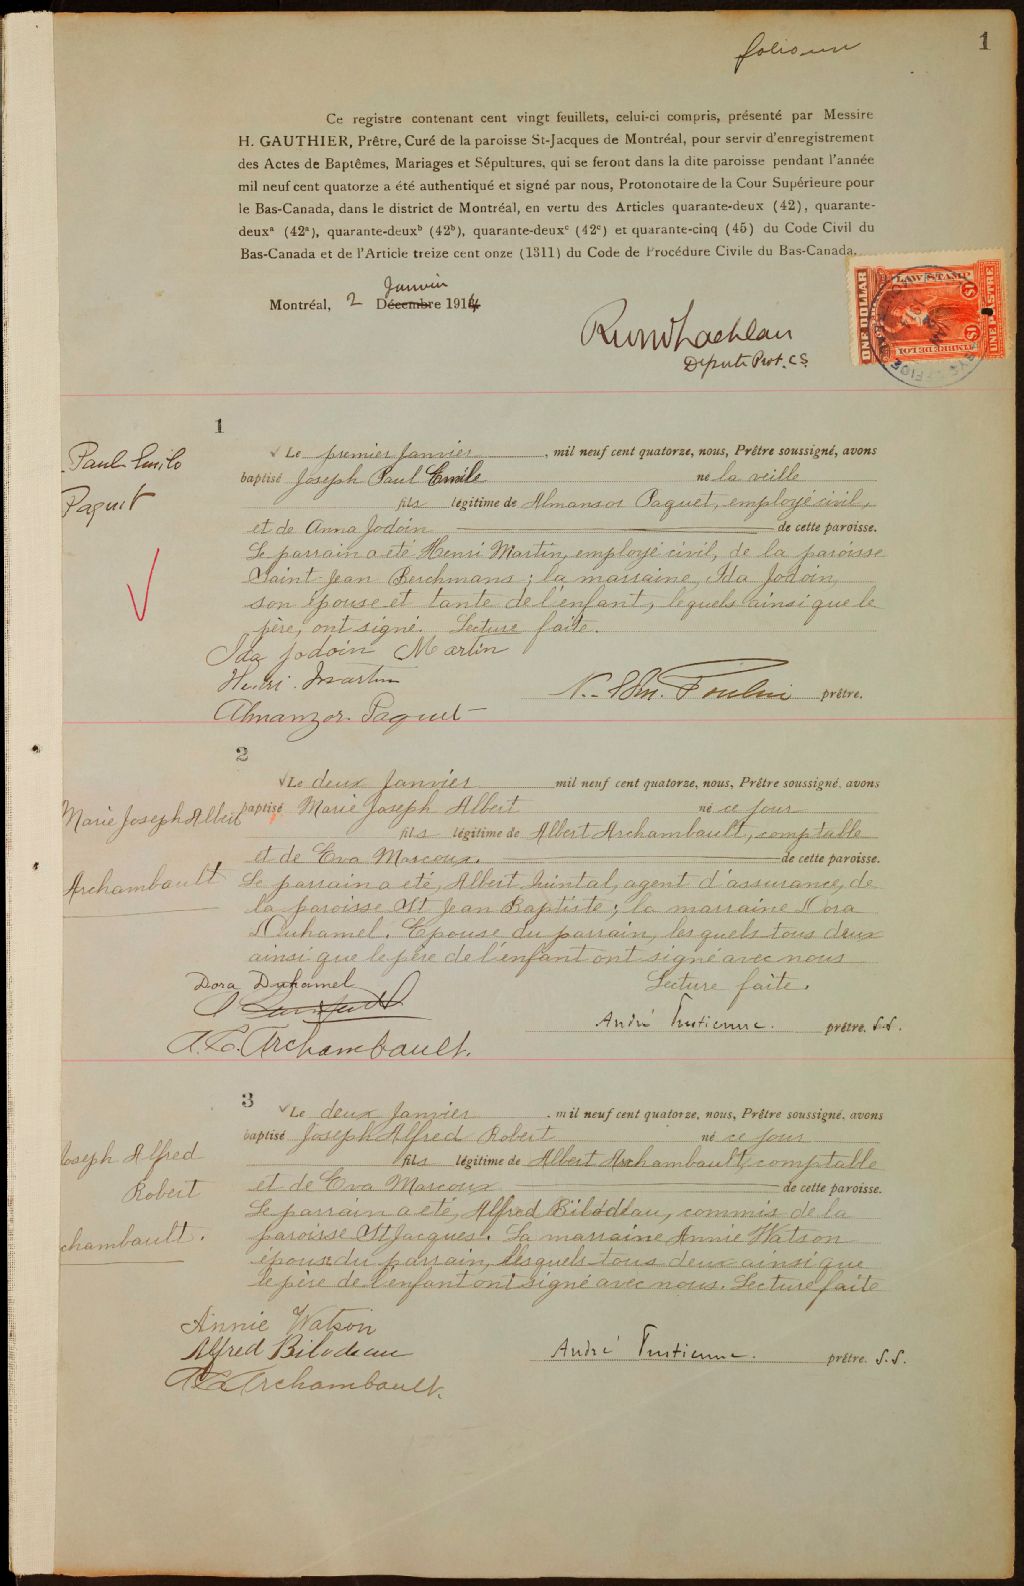 folio un
1
Ce registre contenant cent vingt feuillets, celui-ci compris, présenté par Messire
H. GAUTHIER, Prêtre, Curé de la paroisse St-Jacques de Montréal, pour servir d'enregistrement
des Actes de Baptêmes, Mariages et Sépultures, qui se feront dans la dite paroisse pendant l'année
mil neuf cent quatorze a été authentiqué et signé par nous, Protonotaire de la Cour Supérieure pour
le Bas-Canada, dans le district de Montréal, en vertu des Articles quarante-deux (42), quarante-
deuxᵃ (42ᵃ), quarante-deuxᵇ (42ᵇ), quarante-deuxᶜ (42ᶜ) et quarante-cinq (45) du Code Civil du
Bas-Canada et de l'Article treize cent onze (1311) du Code de Procédure Civile du Bas-Canada.
Janvier
Montréal, 2 Décembre 1914
Député Prot. C.S.
ONE DOLLAR
LAW STAMP
$1
$1
TIMBRE DE LOI
ONE PIASTRE
1
Paul Emile
Paquet
Le premier Janvier, mil neuf cent quatorze, nous, Prêtre soussigné, avons
baptisé Joseph Paul Emile né la veille
fils légitime de Almansor Paquet, employé civil,
et de Anna Jodoin de cette paroisse.
Le parrain a été Henri Martin, employé civil, de la paroisse
Saint-Jean Berchmans; la marraine, Ida Jodoin,
son épouse et tante de l'enfant, lequels ainsi que le
père, ont signé. Lecture faite.
Ida Jodoin Martin
Henri Martin
prêtre.
Almanzor Paquet
2
Marie Joseph Albert
Archambault
Le deux Janvier mil neuf cent quatorze, nous, Prêtre soussigné, avons
baptisé Marie Joseph Albert né ce jour
fils légitime de Albert Archambault, comptable
et de Eva Marcoux. de cette paroisse.
Le parrain a été, Albert Quintal, agent d'assurance, de
la paroisse St Jean Baptiste; la marraine Dora
Duhamel. Epouse du parrain, lesquels tous deux
ainsi que le père de l'enfant ont signé avec nous
Lecture faite.
Dora Duhamel
André prêtre. S.S.
A. E. Archambault.
3
Joseph Alfred
Robert
chambault.
Le deux Janvier, mil neuf cent quatorze, nous, Prêtre soussigné, avons
baptisé Joseph Alfred Robert né ce jour
fils légitime de Albert Archambault, comptable
et de Eva Marcoux de cette paroisse.
Le parrain a été, Alfred Bilodeau, commis de la
paroisse St Jacques. La marraine Annie Watson
épouse du parrain, lesquels tous deux ainsi que
le père de l'enfant ont signé avec nous. Lecture faite
Annie Watson
Alfred Bilodeau
André prêtre. S.S.
A. E. Archambault.